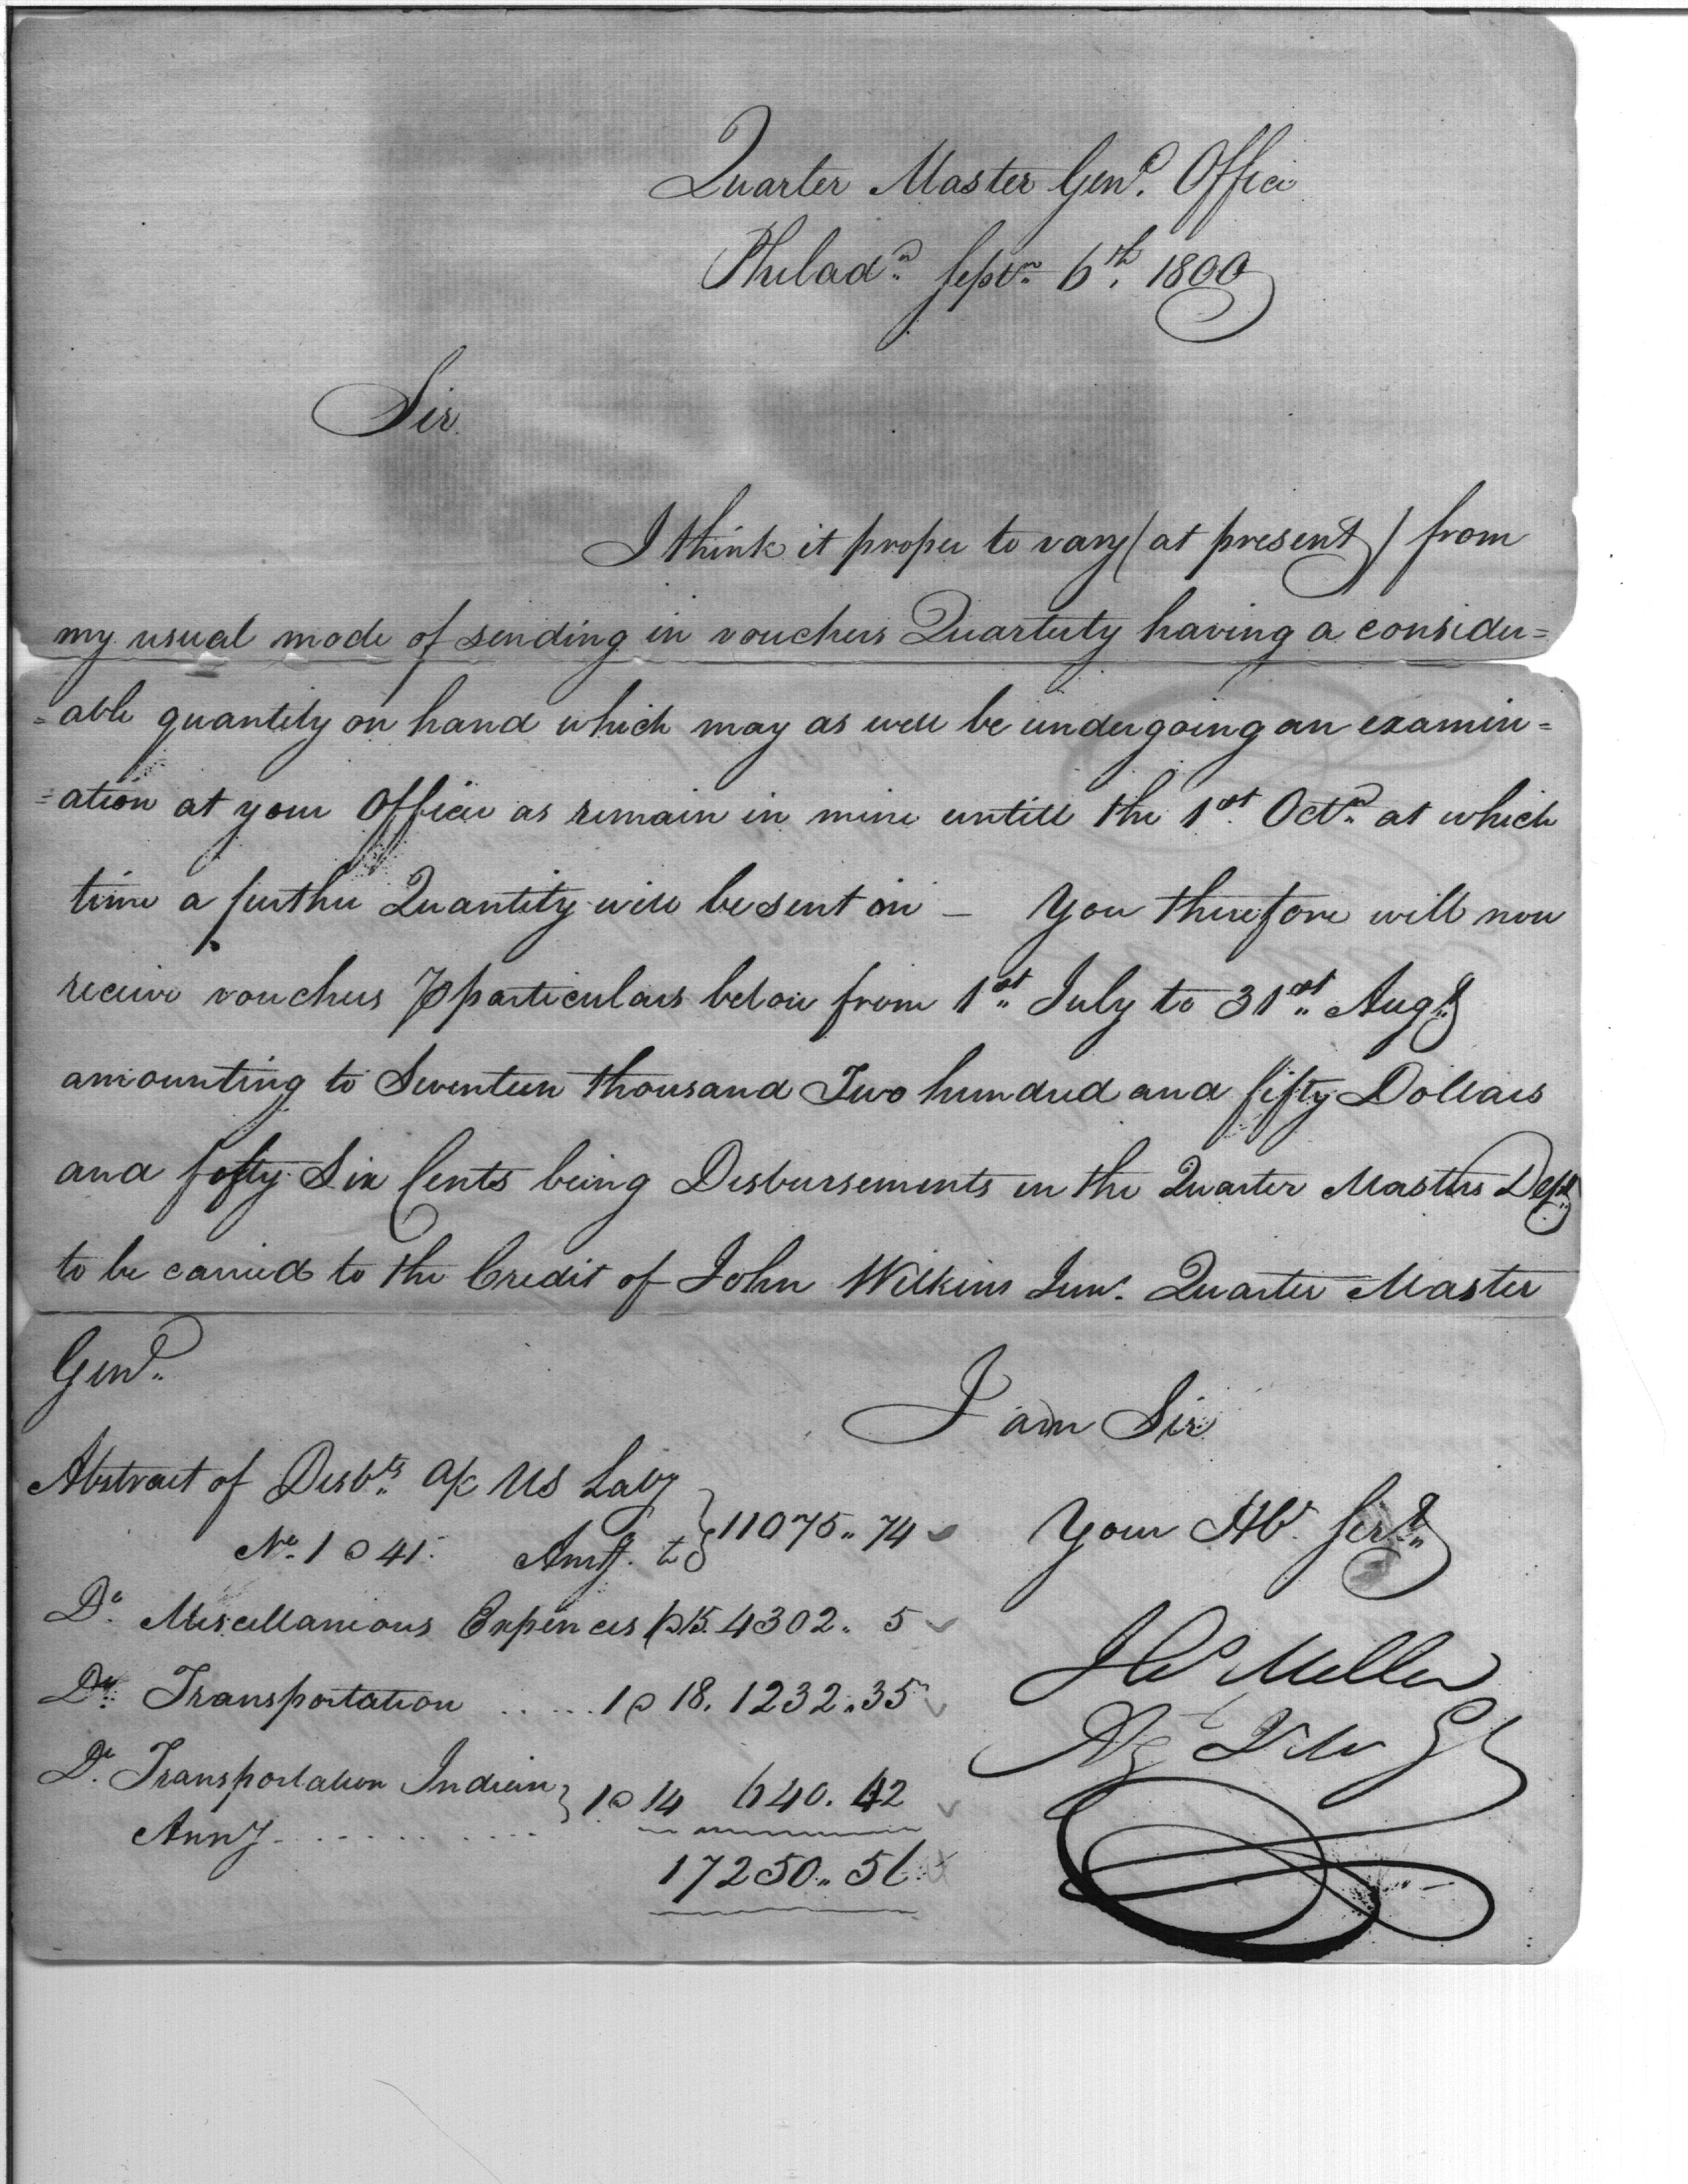 Quarter Master Genl. Office
Philada. Septr. 6th. 1800
Sir
I think it proper to vary (at present) from
my usual mode of sending in vouchers Quarterly having a consider=
=able quantity on hand which may as well be undergoing an examin=
=ation at your Office as remain in mine untill the 1st. Octr. at which
time a further Quantity will be sent in — You therefore will now
receive vouchers ⅌ particulars below from 1st. July to 31st. Augt.
amounting to Seventeen thousand Two hundred and fifty Dollars
and fifty Six Cents being Disbursements in the Quarter Masters Dept.
to be carried to the Credit of John Wilkins Junr. Quarter Master
Genl.
I am Sir
Abstract of Disbts. a/c US
No. 1 @ 41. Amtg. to } 11075.. 74
Your Hb. Servt.
Do. Miscellanious Expences 1 @ 15. 4302. 5
Do. Transportation ..... 1 @ 18. 1232..35
Jno Miller
Do. Transportation Indian } 1 @ 14 640. 42
Ag QMG
Anny. ..........
17250.. 56